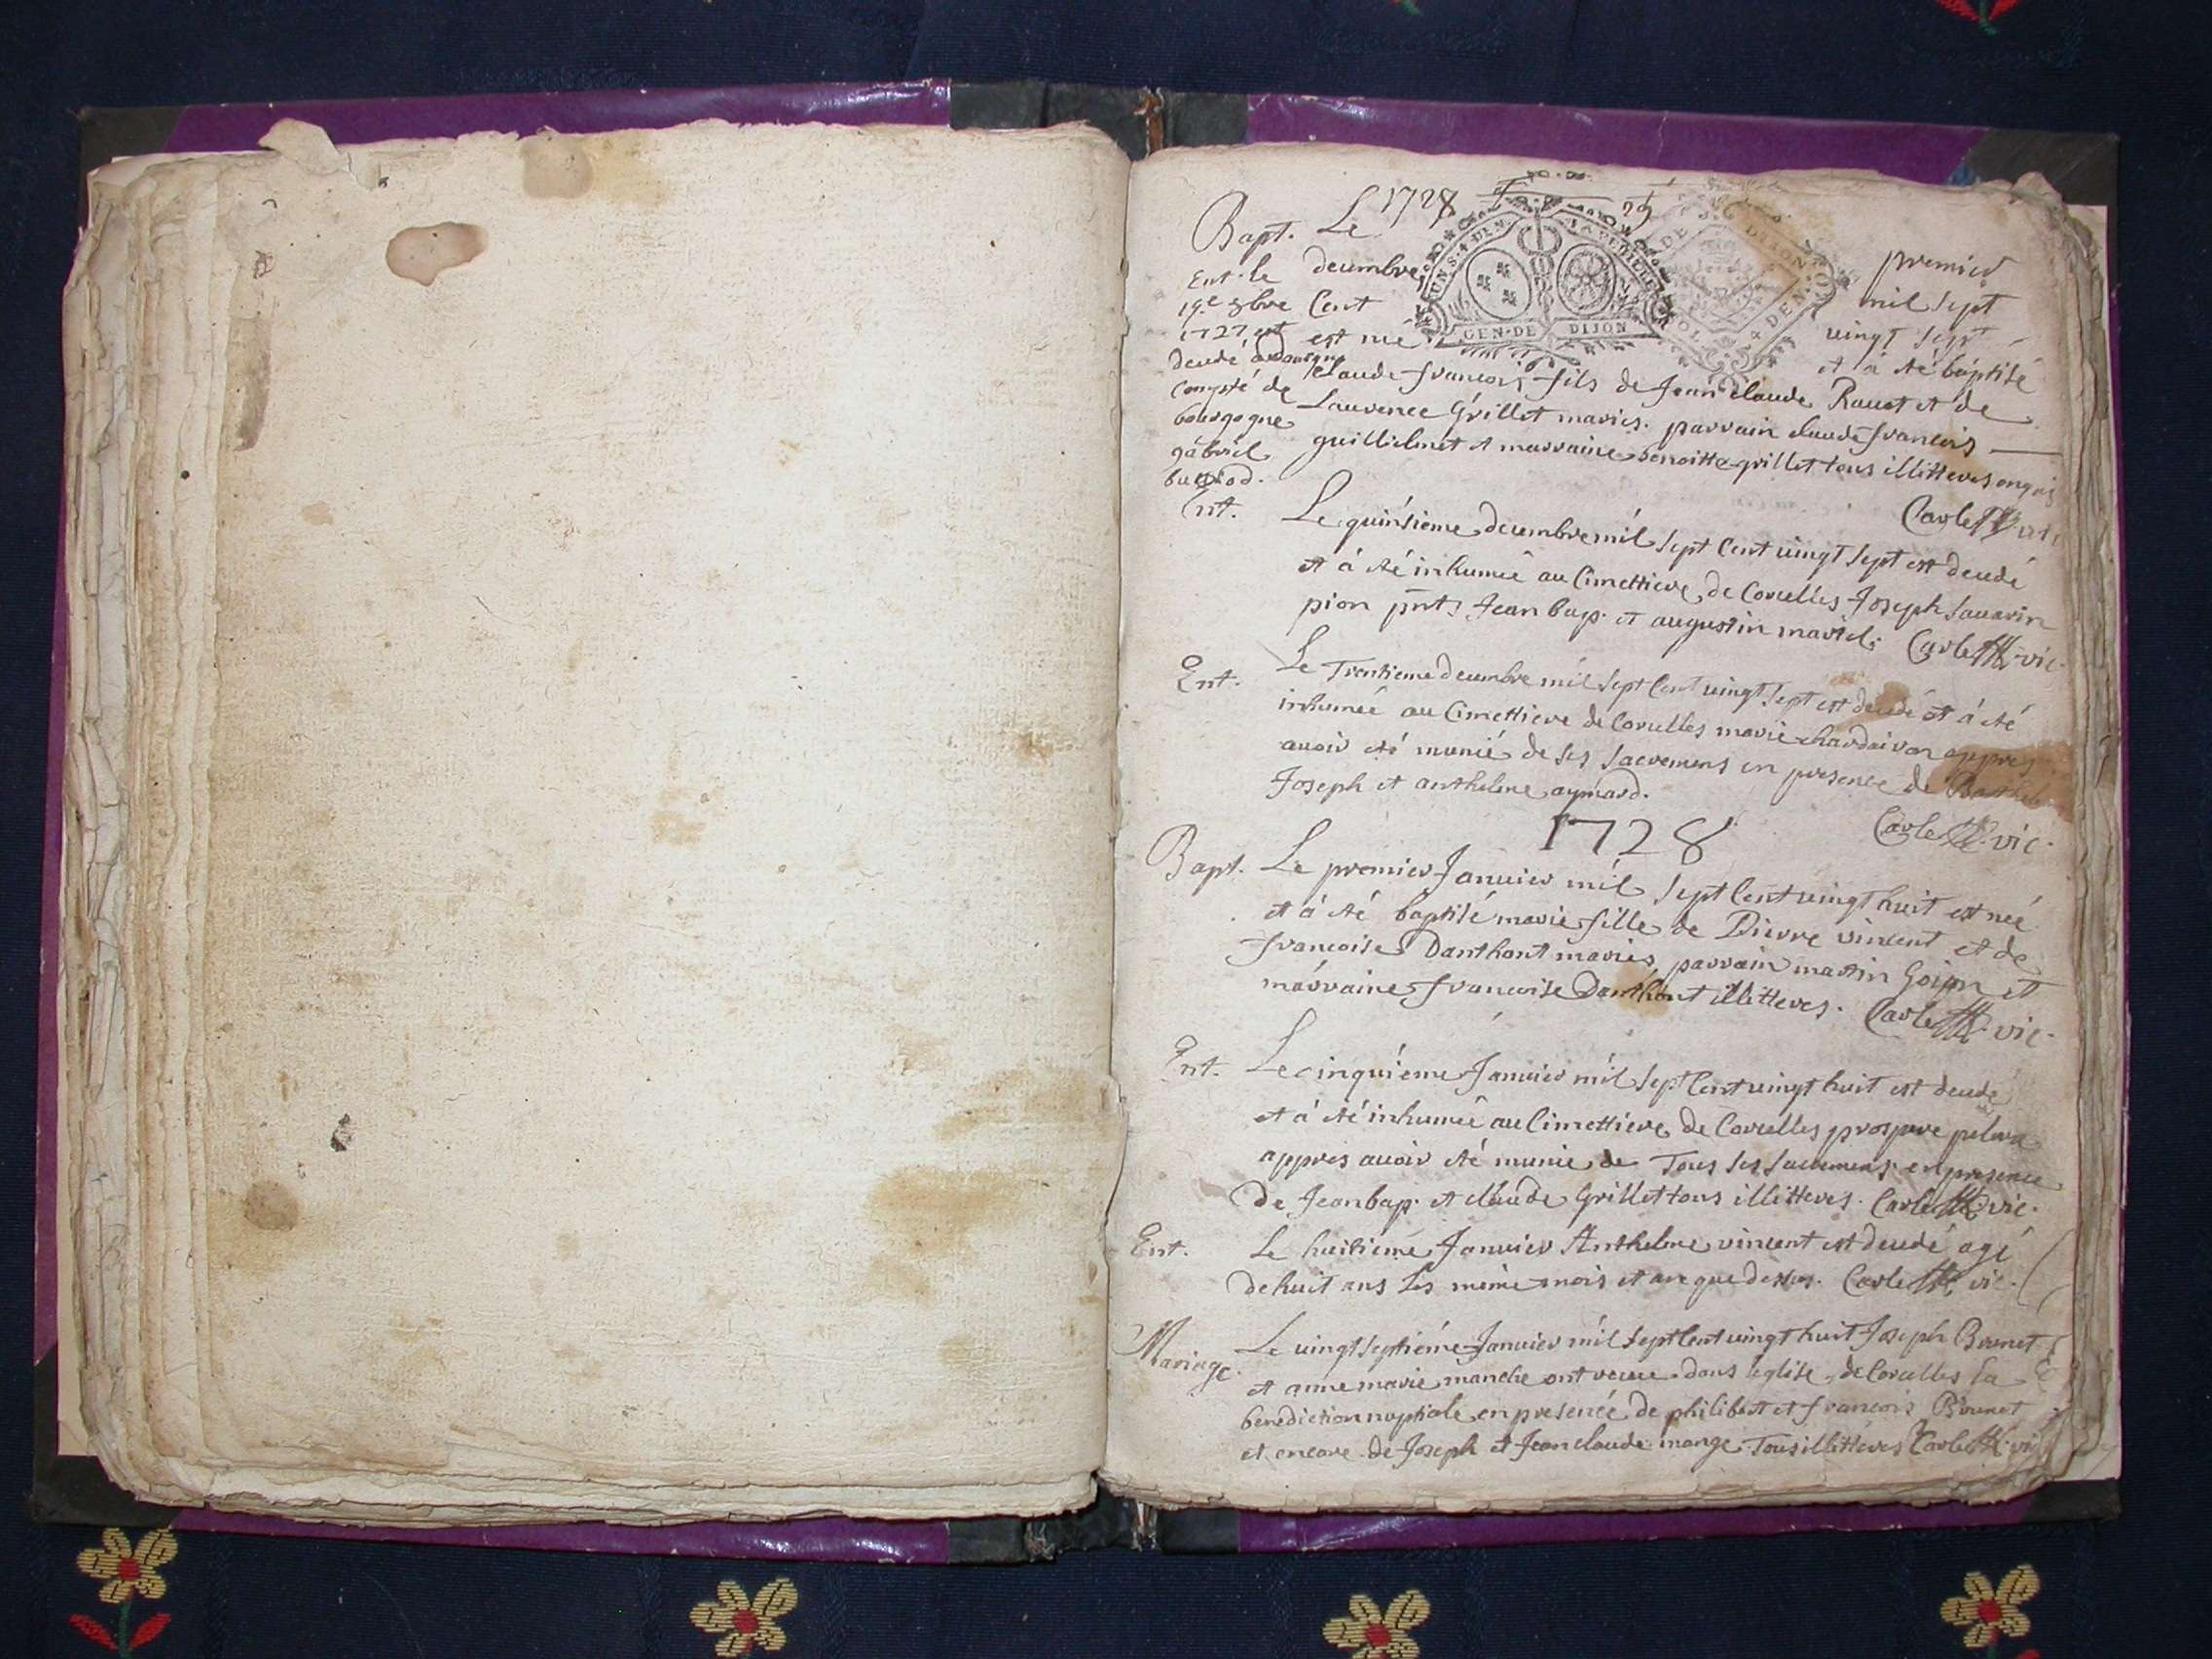 1728
Bapt. Le premier
decembre mil sept
Cent vingt sept
est né et à été baptisé
Claude francois fils de Jean claude Rauet et de
Laurence Grillet mariés. parrain claude francois
guillielmet et marraine benoitte grillet tous illitteres enquis
Carle vic
Ent. le
19e 8bre
1727 est
decedé
Compté de
bourgogne
gabriel
UN S. 4 DEN. LA FEUILLE
GEN. DE DIJON
Ent. Le quinsieme decembre mil sept Cent vingt sept est decedé
et à été inhumé au Cimettiere de Corcelles Joseph Sauarin
pion pnts Jean bap. et augustin martel. Carle vic.
Ent. Le Trentieme decembre mil sept Cent vingt sept est decedé et à été
inhumée au Cimettiere de Corcelles marie chardairon appres
auoir été munié de ses sacremens en presence de
Joseph et anthelme aymard.
Carle vic.
1728
Bapt. Le premier Januier mil sept Cent vingt huit est neé
et à été baptisé marie fille de Pierre vincent et de
francoise Danthont mariés parrain martin Goijon et
marraine francoise Danthont illitteres. Carle vic.
Ent. Le cinquiéme Januier mil sept Cent vingt huit est decedé
et à été inhumée au Cimettiere de Corcelles prospere
appres auoir été munie de Tous ses sacremens en presence
de Jean bap. et claude Grillet tous illitteres. Carle vic.
Ent. Le huitiéme Januier Anthelme vincent est decedé agé
de huit ans Les même mois et an que dessus. Carle vic.
Mariage. Le vingt septiéme Januier mil sept Cent vingt huit Joseph Brunet
et anne marie manche ont receue dans leglise de Corcelles la
benediction nuptiale en presencé de philibert et francois Brunet
et encore de Joseph et Jean claude mange Tous illitteres Carle vic